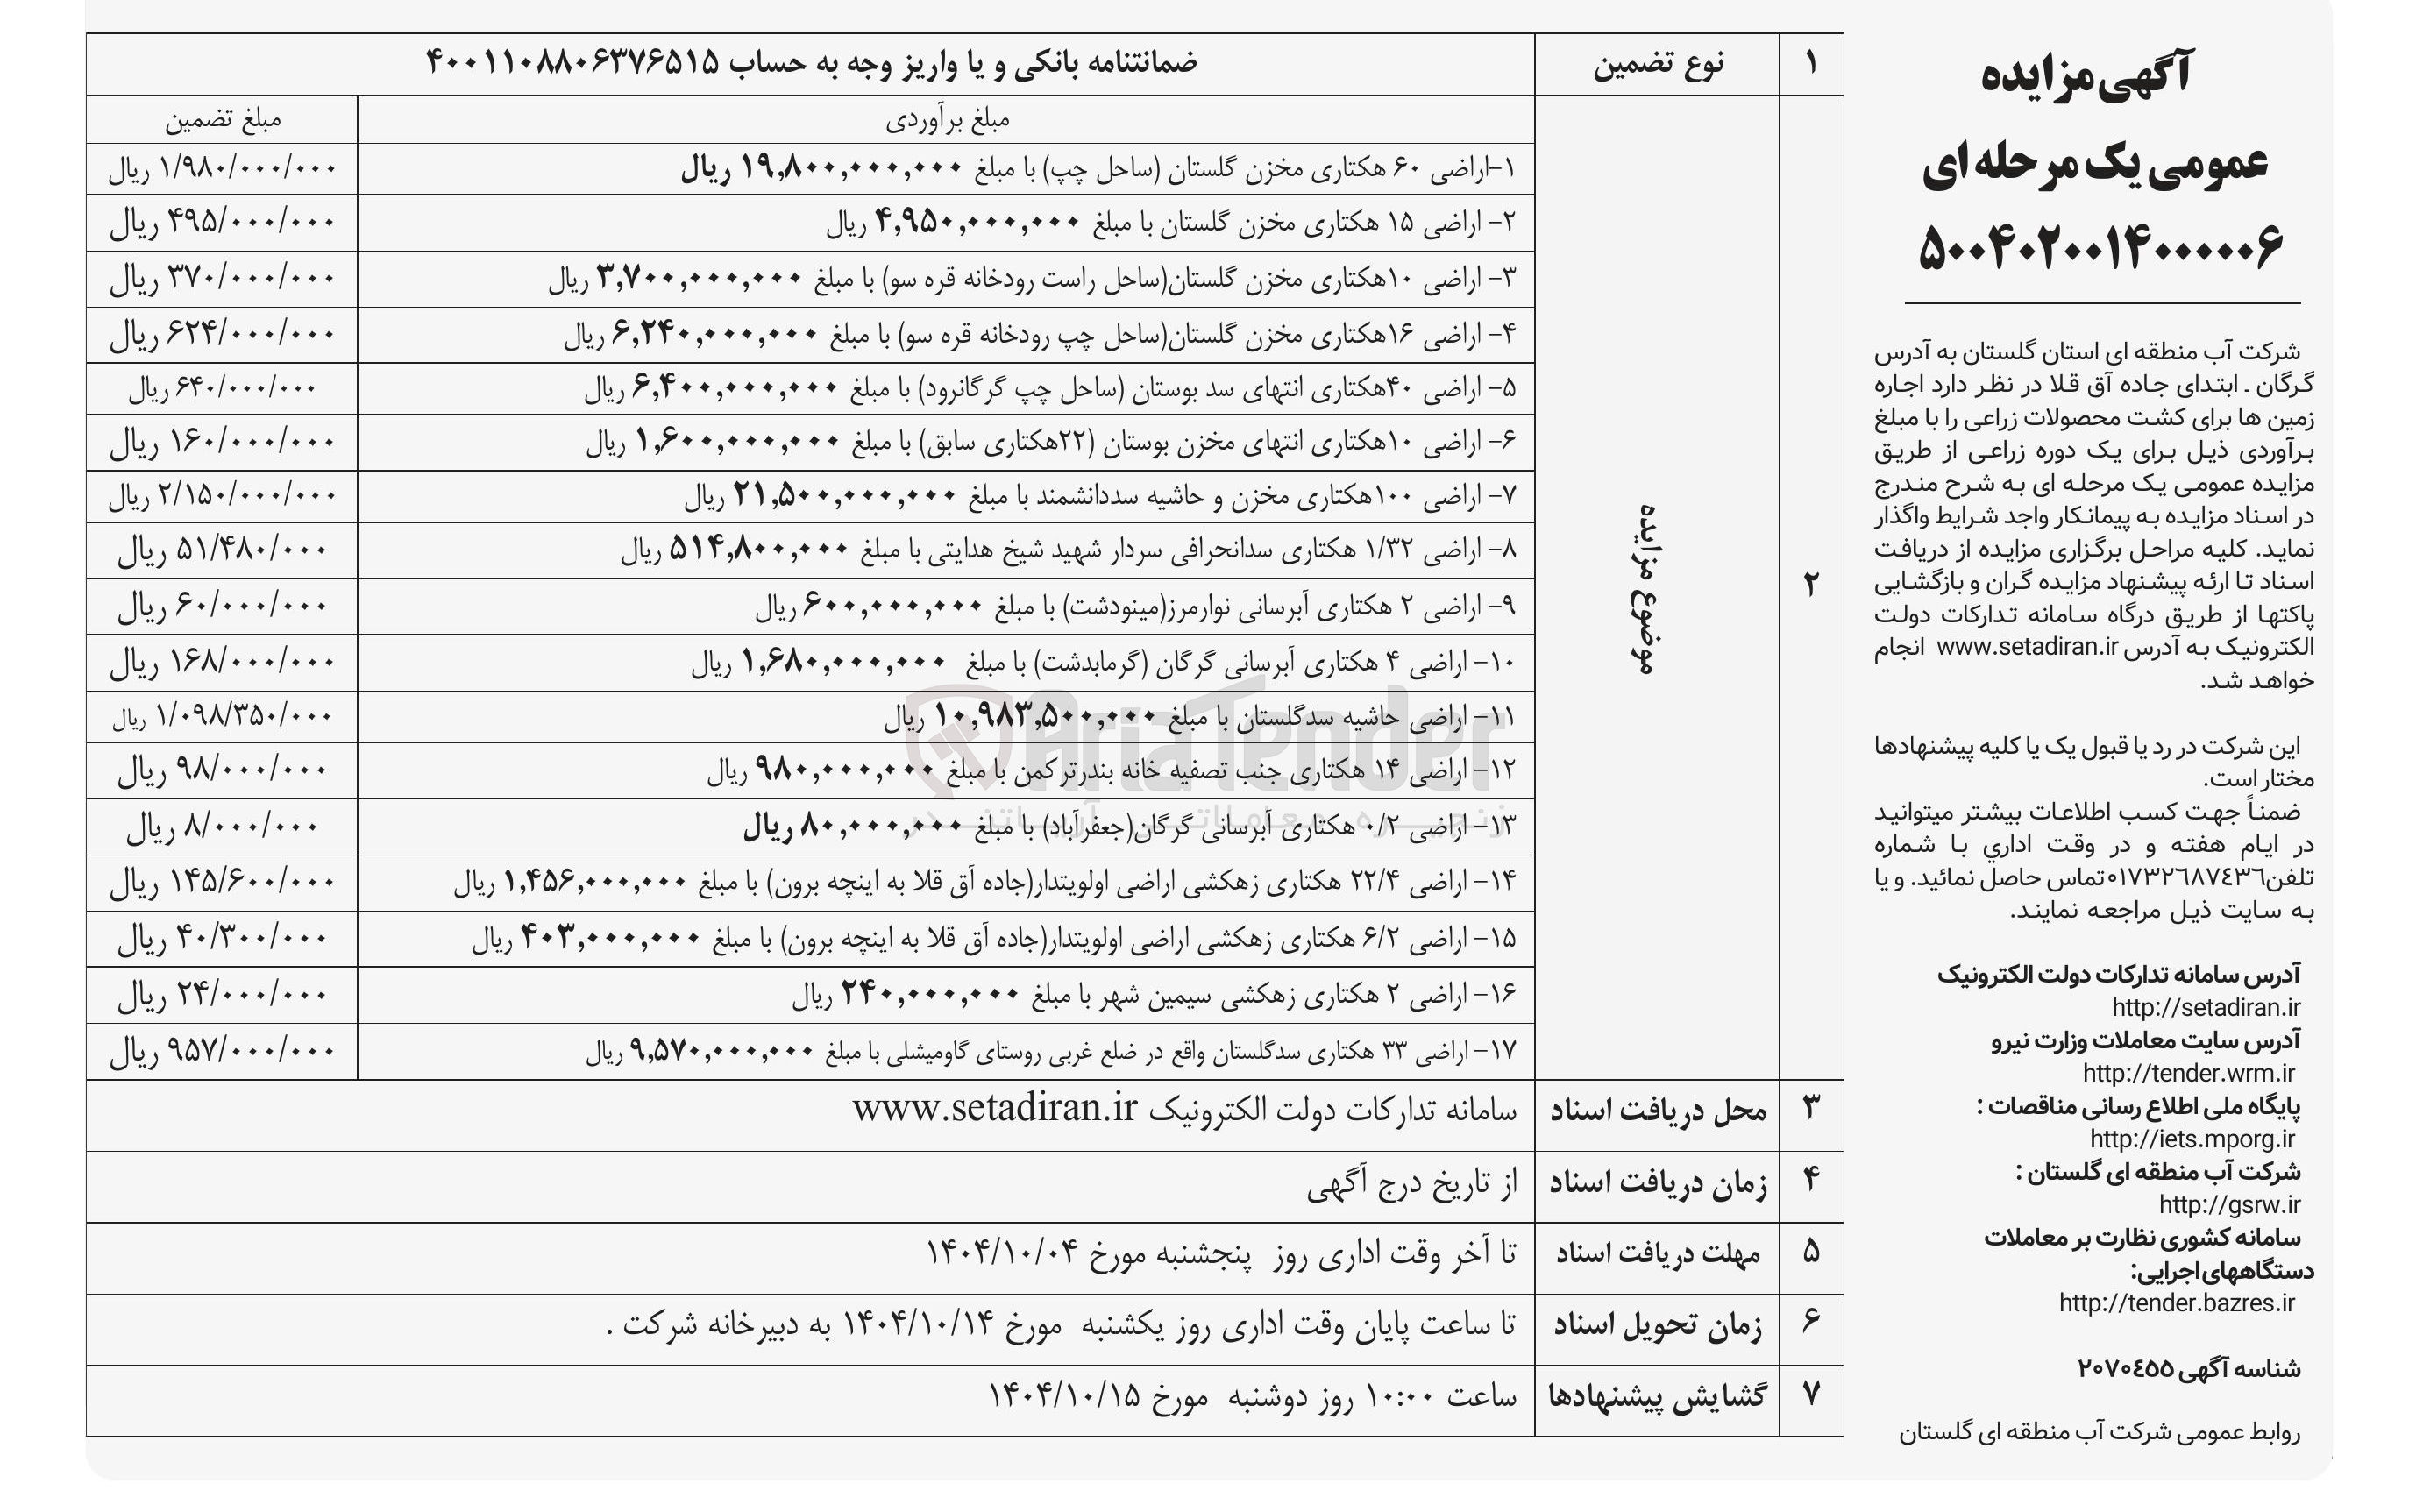 آگهی مزایده
عمومی یک مرحله ای
۵۰۰۴۰۲۰۰۱۴۰۰۰۰۰۶
شرکت آب منطقه ای استان گلستان به آدرس
گرگان ـ ابتدای جاده آق قلا در نظر دارد اجاره
زمین ها برای کشت محصولات زراعی را با مبلغ
برآوردی ذیل برای یک دوره زراعی از طریق
مزایده عمومی یک مرحله ای به شرح مندرج
در اسناد مزایده به پیمانکار واجد شرایط واگذار
نماید. کلیه مراحل برگزاری مزایده از دریافت
اسناد تا ارئه پیشنهاد مزایده گران و بازگشایی
پاکتها از طریق درگاه سامانه تدارکات دولت
الکترونیک به آدرس www.setadiran.ir انجام
خواهد شد.
این شرکت در رد یا قبول یک یا کلیه پیشنهادها
مختار است.
ضمناً جهت کسب اطلاعات بیشتر میتوانید
در ایام هفته و در وقت اداري با شماره
تلفن٠١٧٣٢٦٨٧٤٣٦تماس حاصل نمائید. و یا
به سایت ذیل مراجعه نمایند.
آدرس سامانه تدارکات دولت الکترونیک
http://setadiran.ir
آدرس سایت معاملات وزارت نیرو
http://tender.wrm.ir
پایگاه ملی اطلاع رسانی مناقصات :
http://iets.mporg.ir
شرکت آب منطقه ای گلستان :
http://gsrw.ir
سامانه کشوری نظارت بر معاملات
دستگاههای اجرایی:
http://tender.bazres.ir
شناسه آگهی ٢٠٧٠٤٥٥
روابط عمومی شرکت آب منطقه ای گلستان
۱ نوع تضمین ضمانتنامه بانکی و یا واریز وجه به حساب ۴۰۰۱۱۰۸۸۰۶۳۷۶۵۱۵
۲ موضوع مزایده
مبلغ برآوردی مبلغ تضمین
۱-اراضی ۶۰ هکتاری مخزن گلستان (ساحل چپ) با مبلغ ۱۹,۸۰۰,۰۰۰,۰۰۰ ریال ۱/۹۸۰/۰۰۰/۰۰۰ ریال
۲- اراضی ۱۵ هکتاری مخزن گلستان با مبلغ ۴,۹۵۰,۰۰۰,۰۰۰ ریال ۴۹۵/۰۰۰/۰۰۰ ریال
۳- اراضی ۱۰هکتاری مخزن گلستان(ساحل راست رودخانه قره سو) با مبلغ ۳,۷۰۰,۰۰۰,۰۰۰ ریال ۳۷۰/۰۰۰/۰۰۰ ریال
۴- اراضی ۱۶هکتاری مخزن گلستان(ساحل چپ رودخانه قره سو) با مبلغ ۶,۲۴۰,۰۰۰,۰۰۰ ریال ۶۲۴/۰۰۰/۰۰۰ ریال
۵- اراضی ۴۰هکتاری انتهای سد بوستان (ساحل چپ گرگانرود) با مبلغ ۶,۴۰۰,۰۰۰,۰۰۰ ریال ۶۴۰/۰۰۰/۰۰۰ ریال
۶- اراضی ۱۰هکتاری انتهای مخزن بوستان (۲۲هکتاری سابق) با مبلغ ۱,۶۰۰,۰۰۰,۰۰۰ ریال ۱۶۰/۰۰۰/۰۰۰ ریال
۷- اراضی ۱۰۰هکتاری مخزن و حاشیه سددانشمند با مبلغ ۲۱,۵۰۰,۰۰۰,۰۰۰ ریال ۲/۱۵۰/۰۰۰/۰۰۰ ریال
۸- اراضی ۱/۳۲ هکتاری سدانحرافی سردار شهید شیخ هدایتی با مبلغ ۵۱۴,۸۰۰,۰۰۰ ریال ۵۱/۴۸۰/۰۰۰ ریال
۹- اراضی ۲ هکتاری آبرسانی نوارمرز(مینودشت) با مبلغ ۶۰۰,۰۰۰,۰۰۰ ریال ۶۰/۰۰۰/۰۰۰ ریال
۱۰- اراضی ۴ هکتاری آبرسانی گرگان (گرمابدشت) با مبلغ ۱,۶۸۰,۰۰۰,۰۰۰ ریال ۱۶۸/۰۰۰/۰۰۰ ریال
۱۱- اراضی حاشیه سدگلستان با مبلغ ۱۰,۹۸۳,۵۰۰,۰۰۰ ریال ۱/۰۹۸/۳۵۰/۰۰۰ ریال
۱۲- اراضی ۱۴ هکتاری جنب تصفیه خانه بندرترکمن با مبلغ ۹۸۰,۰۰۰,۰۰۰ ریال ۹۸/۰۰۰/۰۰۰ ریال
۱۳- اراضی ۰/۲هکتاری آبرسانی گرگان(جعفرآباد) با مبلغ ۸۰,۰۰۰,۰۰۰ ریال ۸/۰۰۰/۰۰۰ ریال
۱۴- اراضی ۲۲/۴ هکتاری زهکشی اراضی اولویتدار(جاده آق قلا به اینچه برون) با مبلغ ۱,۴۵۶,۰۰۰,۰۰۰ ریال ۱۴۵/۶۰۰/۰۰۰ ریال
۱۵- اراضی ۶/۲ هکتاری زهکشی اراضی اولویتدار(جاده آق قلا به اینچه برون) با مبلغ ۴۰۳,۰۰۰,۰۰۰ ریال ۴۰/۳۰۰/۰۰۰ ریال
۱۶- اراضی ۲ هکتاری زهکشی سیمین شهر با مبلغ ۲۴۰,۰۰۰,۰۰۰ ریال ۲۴/۰۰۰/۰۰۰ ریال
۱۷- اراضی ۳۳ هکتاری سدگلستان واقع در ضلع غربی روستای گاومیشلی با مبلغ ۹,۵۷۰,۰۰۰,۰۰۰ ریال ۹۵۷/۰۰۰/۰۰۰ ریال
۳ محل دریافت اسناد سامانه تدارکات دولت الکترونیک www.setadiran.ir
۴ زمان دریافت اسناد از تاریخ درج آگهی
۵ مهلت دریافت اسناد تا آخر وقت اداری روز پنجشنبه مورخ ۱۴۰۴/۱۰/۰۴
۶ زمان تحویل اسناد تا ساعت پایان وقت اداری روز یکشنبه مورخ ۱۴۰۴/۱۰/۱۴ به دبیرخانه شرکت .
۷ گشایش پیشنهادها ساعت ۱۰:۰۰ روز دوشنبه مورخ ۱۴۰۴/۱۰/۱۵
AriaTender